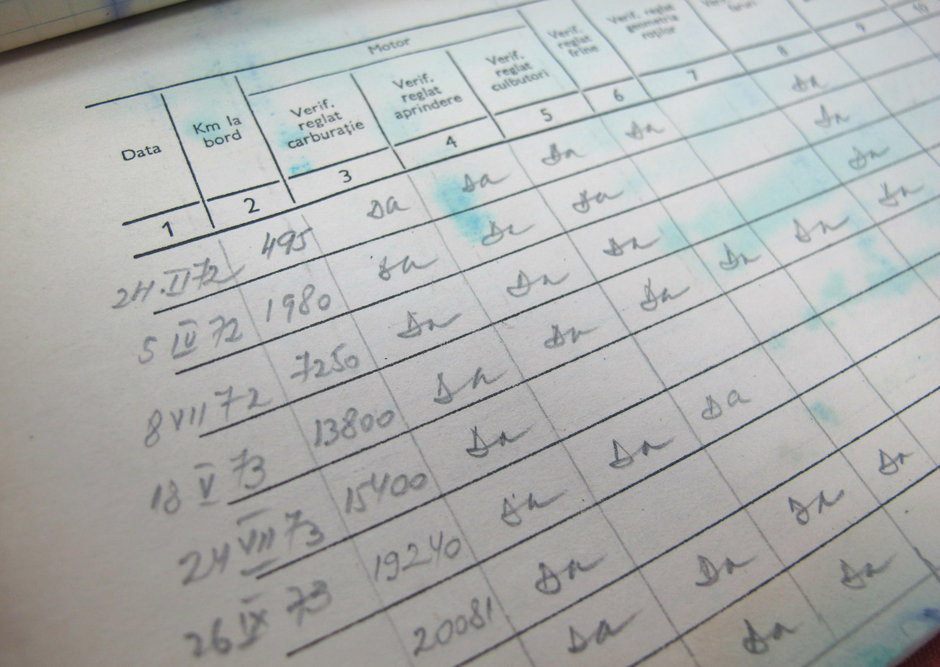 Motor
Data
Km la
bord
Verif.
reglat
carburație
Verif.
reglat
aprindere
Verif.
reglat
culbutori
Verif.
reglat
frîne
Verif. reglat
geometria
roților
1 2 3 4 5 6 7 8 9 10
24.II 72 495 Da Da Da Da Da
5 IV 72 1980 Da Da Da Da
8 VII 72 7250 Da Da Da Da
18 V 73 13800 Da Da Da Da Da Da
24 VII 73 15400 Da
26 IX 73 19240 Da Da Da
20081 Da
Da Da Da Da
Da Da